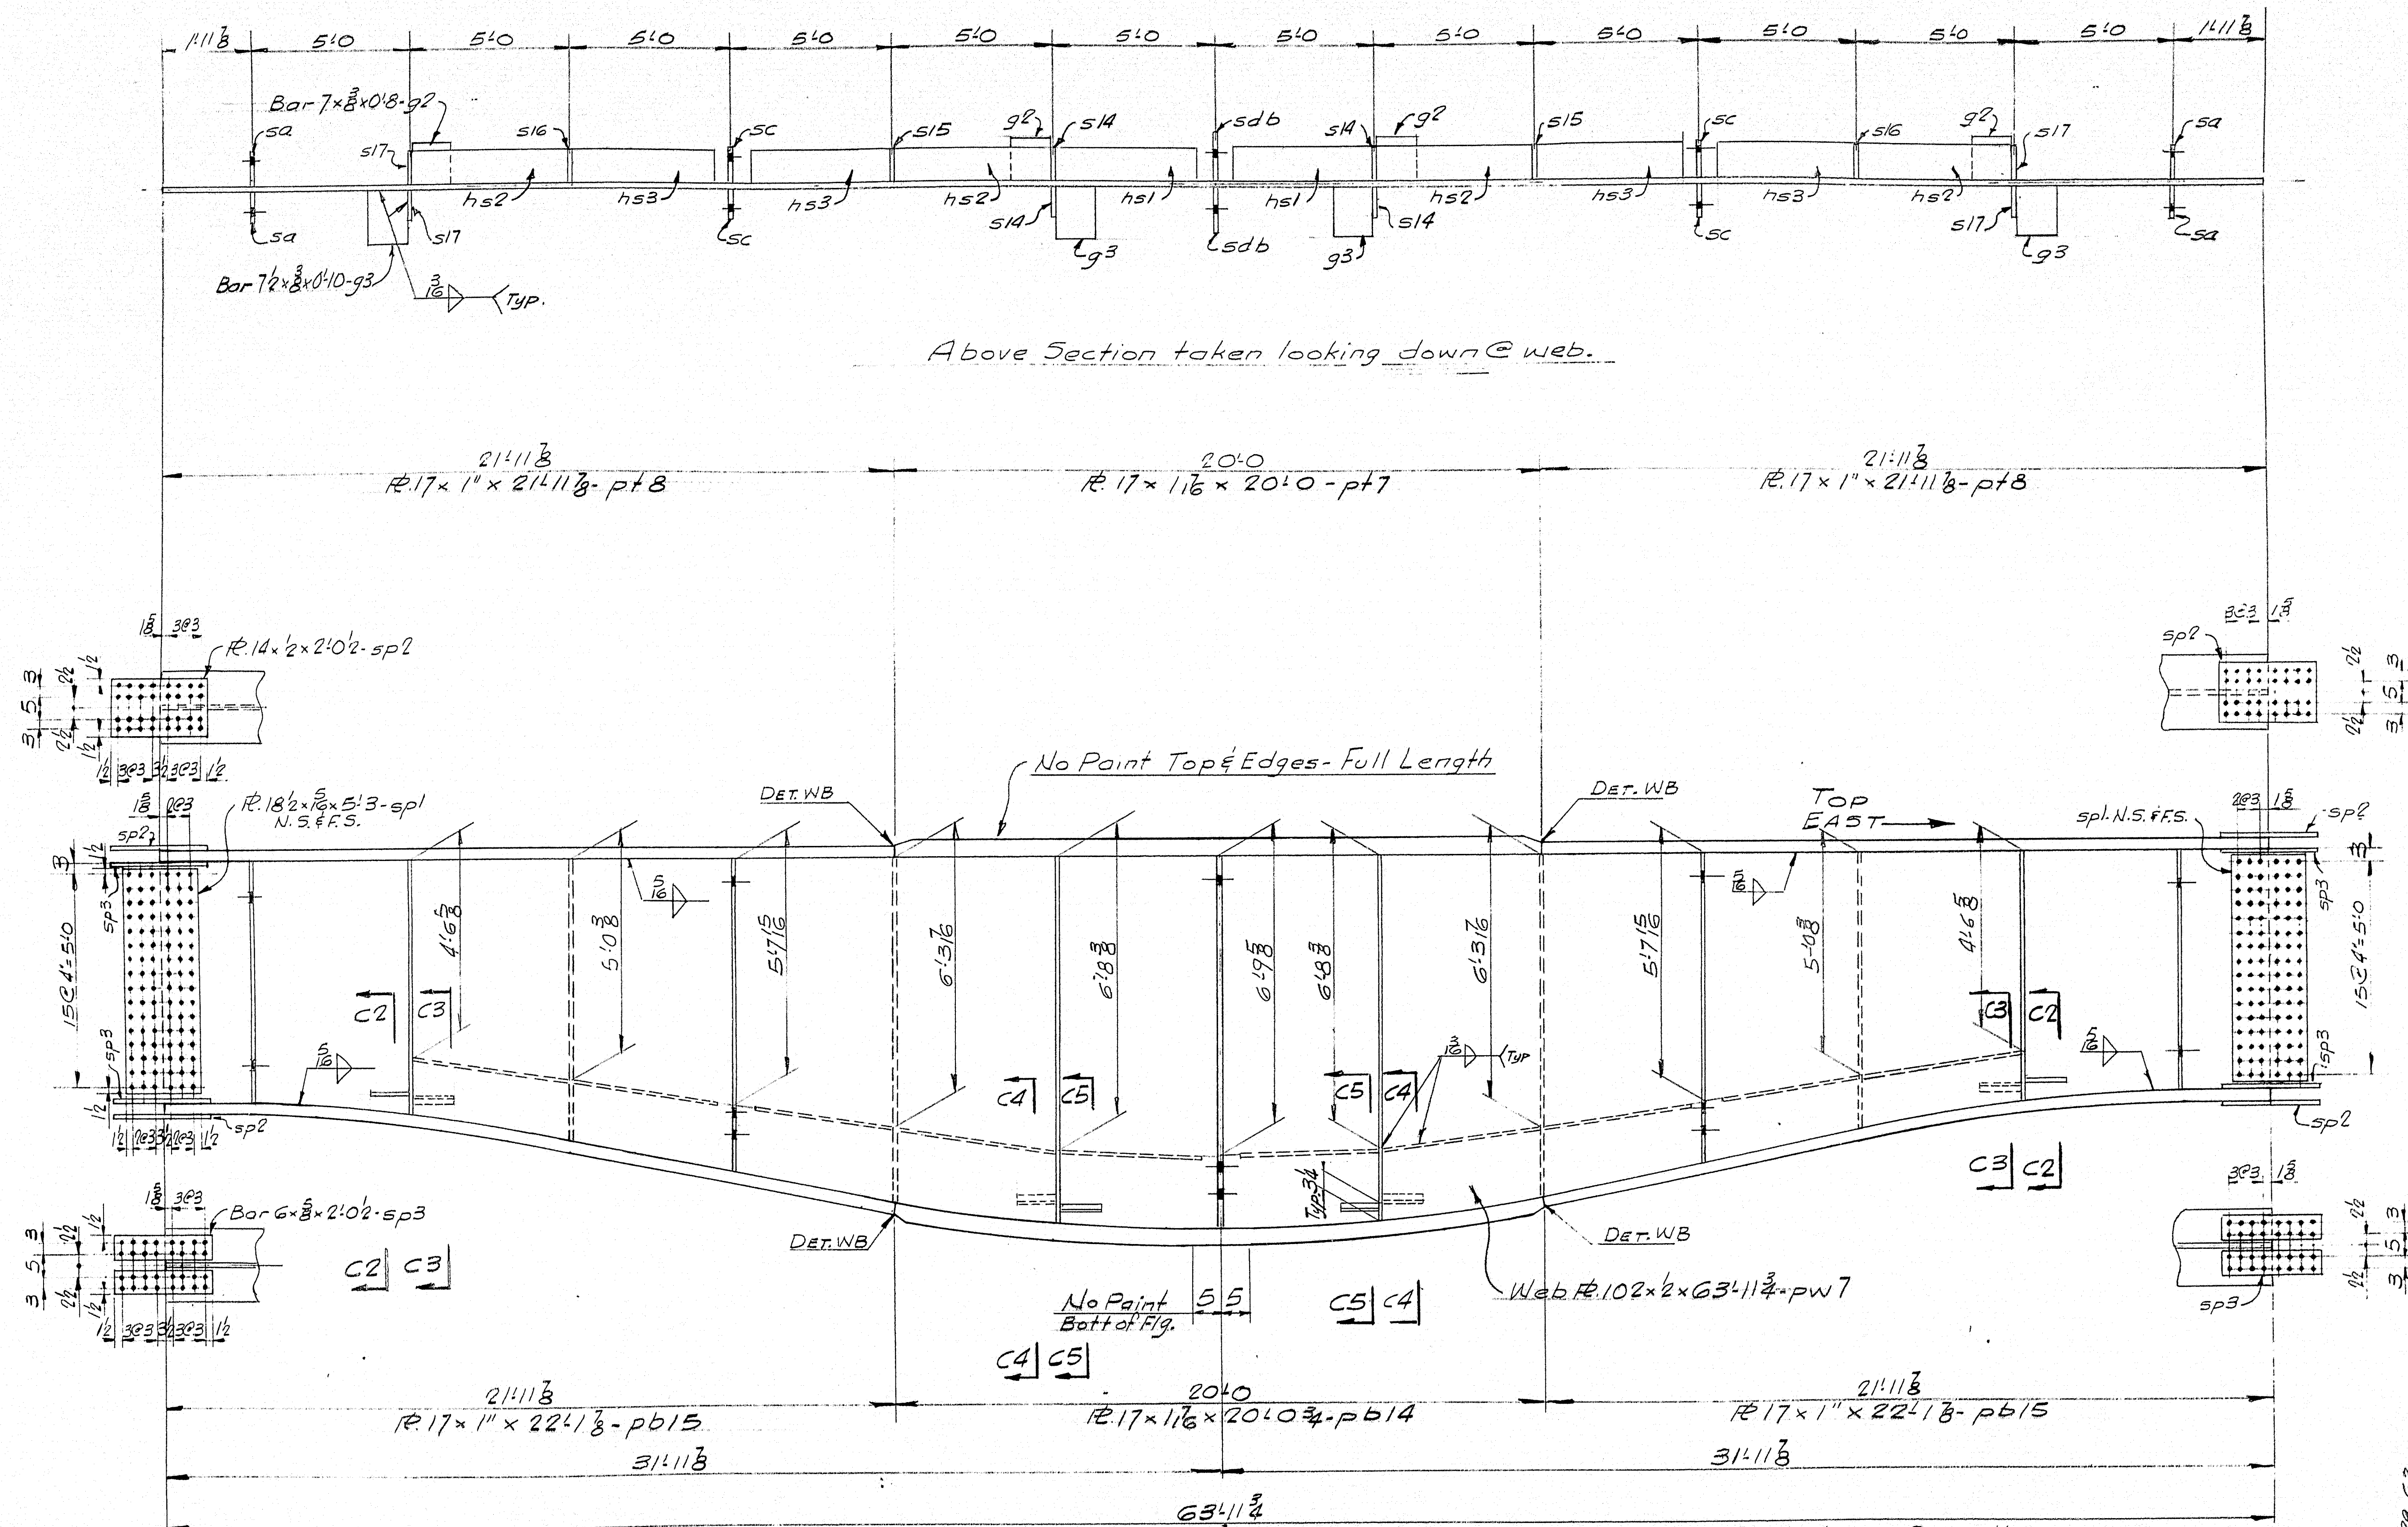 1'-11 7/8 5'-0 5'-0 5'-0 5'-0 5'-0 5'-0 5'-0 5'-0 5'-0 5'-0 5'-0 5'-0 1'-11 7/8
Bar 7×3/8×0'-8-g2
sa s17 s16 sc s15 g2 s14 sdb s14 g2 s15 sc s16 g2 s17 sa
hs2 hs3 hs3 hs2 hs1 hs1 hs2 hs3 hs3 hs2
sa s17 sc s14 g3 sdb g3 s14 sc s17 g3 sa
Bar 7 1/2×3/8×0'-10-g3
3/16 Typ.
Above Section taken looking down @ web.
21'-11 7/8 20'-0 21'-11 7/8
PL.17 × 1" × 21'-11 7/8 - pt8
PL.17 × 1 7/16 × 20'-0 - pt7
PL.17 × 1" × 21'-11 7/8 - pt8
1 5/8 3@3
PL.14×1/2×2'-0 1/2-sp2
3 5 3
2 1/2 2 1/2
1 1/2 1 1/2
1 1/2 3@3 3 1/2 3@3 1 1/2
3@3 1 5/8
sp2
2 1/2 2 1/2
3 5 3
No Paint Top & Edges - Full Length
DET. WB
DET. WB
TOP
EAST
1 5/8 2@3
PL.18 1/2×5/16×5'-3-sp1
N.S.& F.S.
sp2
3 1 1/2
sp3
15@4"=5'-0
sp3
1 1/2
1 1/2 2@3 3 1/2 2@3 1 1/2
sp2
2@3 1 5/8
sp1-N.S.& F.S.
sp2
3
sp3
15@4"=5'-0
sp3
sp2
5/16
5/16
4'-6 5/8 5'-0 3/8 5'-7 15/16 6'-3 7/16 6'-8 3/8 6'-9 5/8 6'-8 3/8 6'-3 7/16 5'-7 15/16 5'-0 3/8 4'-6 5/8
C2 C3
C3 C2
5/16
5/16
C4 C5
C5 C4
3/16 Typ
Typ. 3 1/4
C3 C2
1 5/8 3@3
Bar 6×5/8×2'-0 1/2-sp3
3 5 3
2 1/2 2 1/2
1 1/2 1 1/2
1 1/2 3@3 3 1/2 3@3 1 1/2
C2 C3
DET. WB
DET. WB
No Paint
Bott of Flg.
5 5
C5 C4
C4 C5
Web PL.102×1/2×63'-11 3/4-pw7
3@3 1 5/8
2 1/2 2 1/2
3 5 3
sp3
21'-11 7/8 20'-0 21'-11 7/8
PL.17 × 1" × 22'-1 7/8 - pb15
PL.17×1 7/16×20'-0 3/4-pb14
PL 17 × 1" × 22'-1 7/8 - pb15
31'-11 7/8 31'-11 7/8
63'-11 3/4